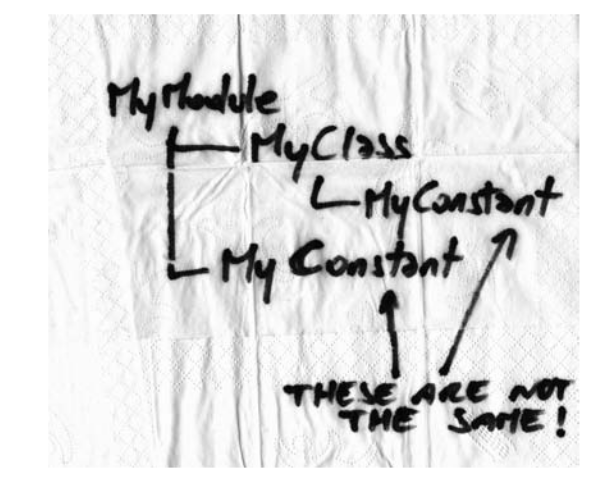 MyModule
MyClass
MyConstant
MyConstant
THESE ARE NOT
THE SAME!